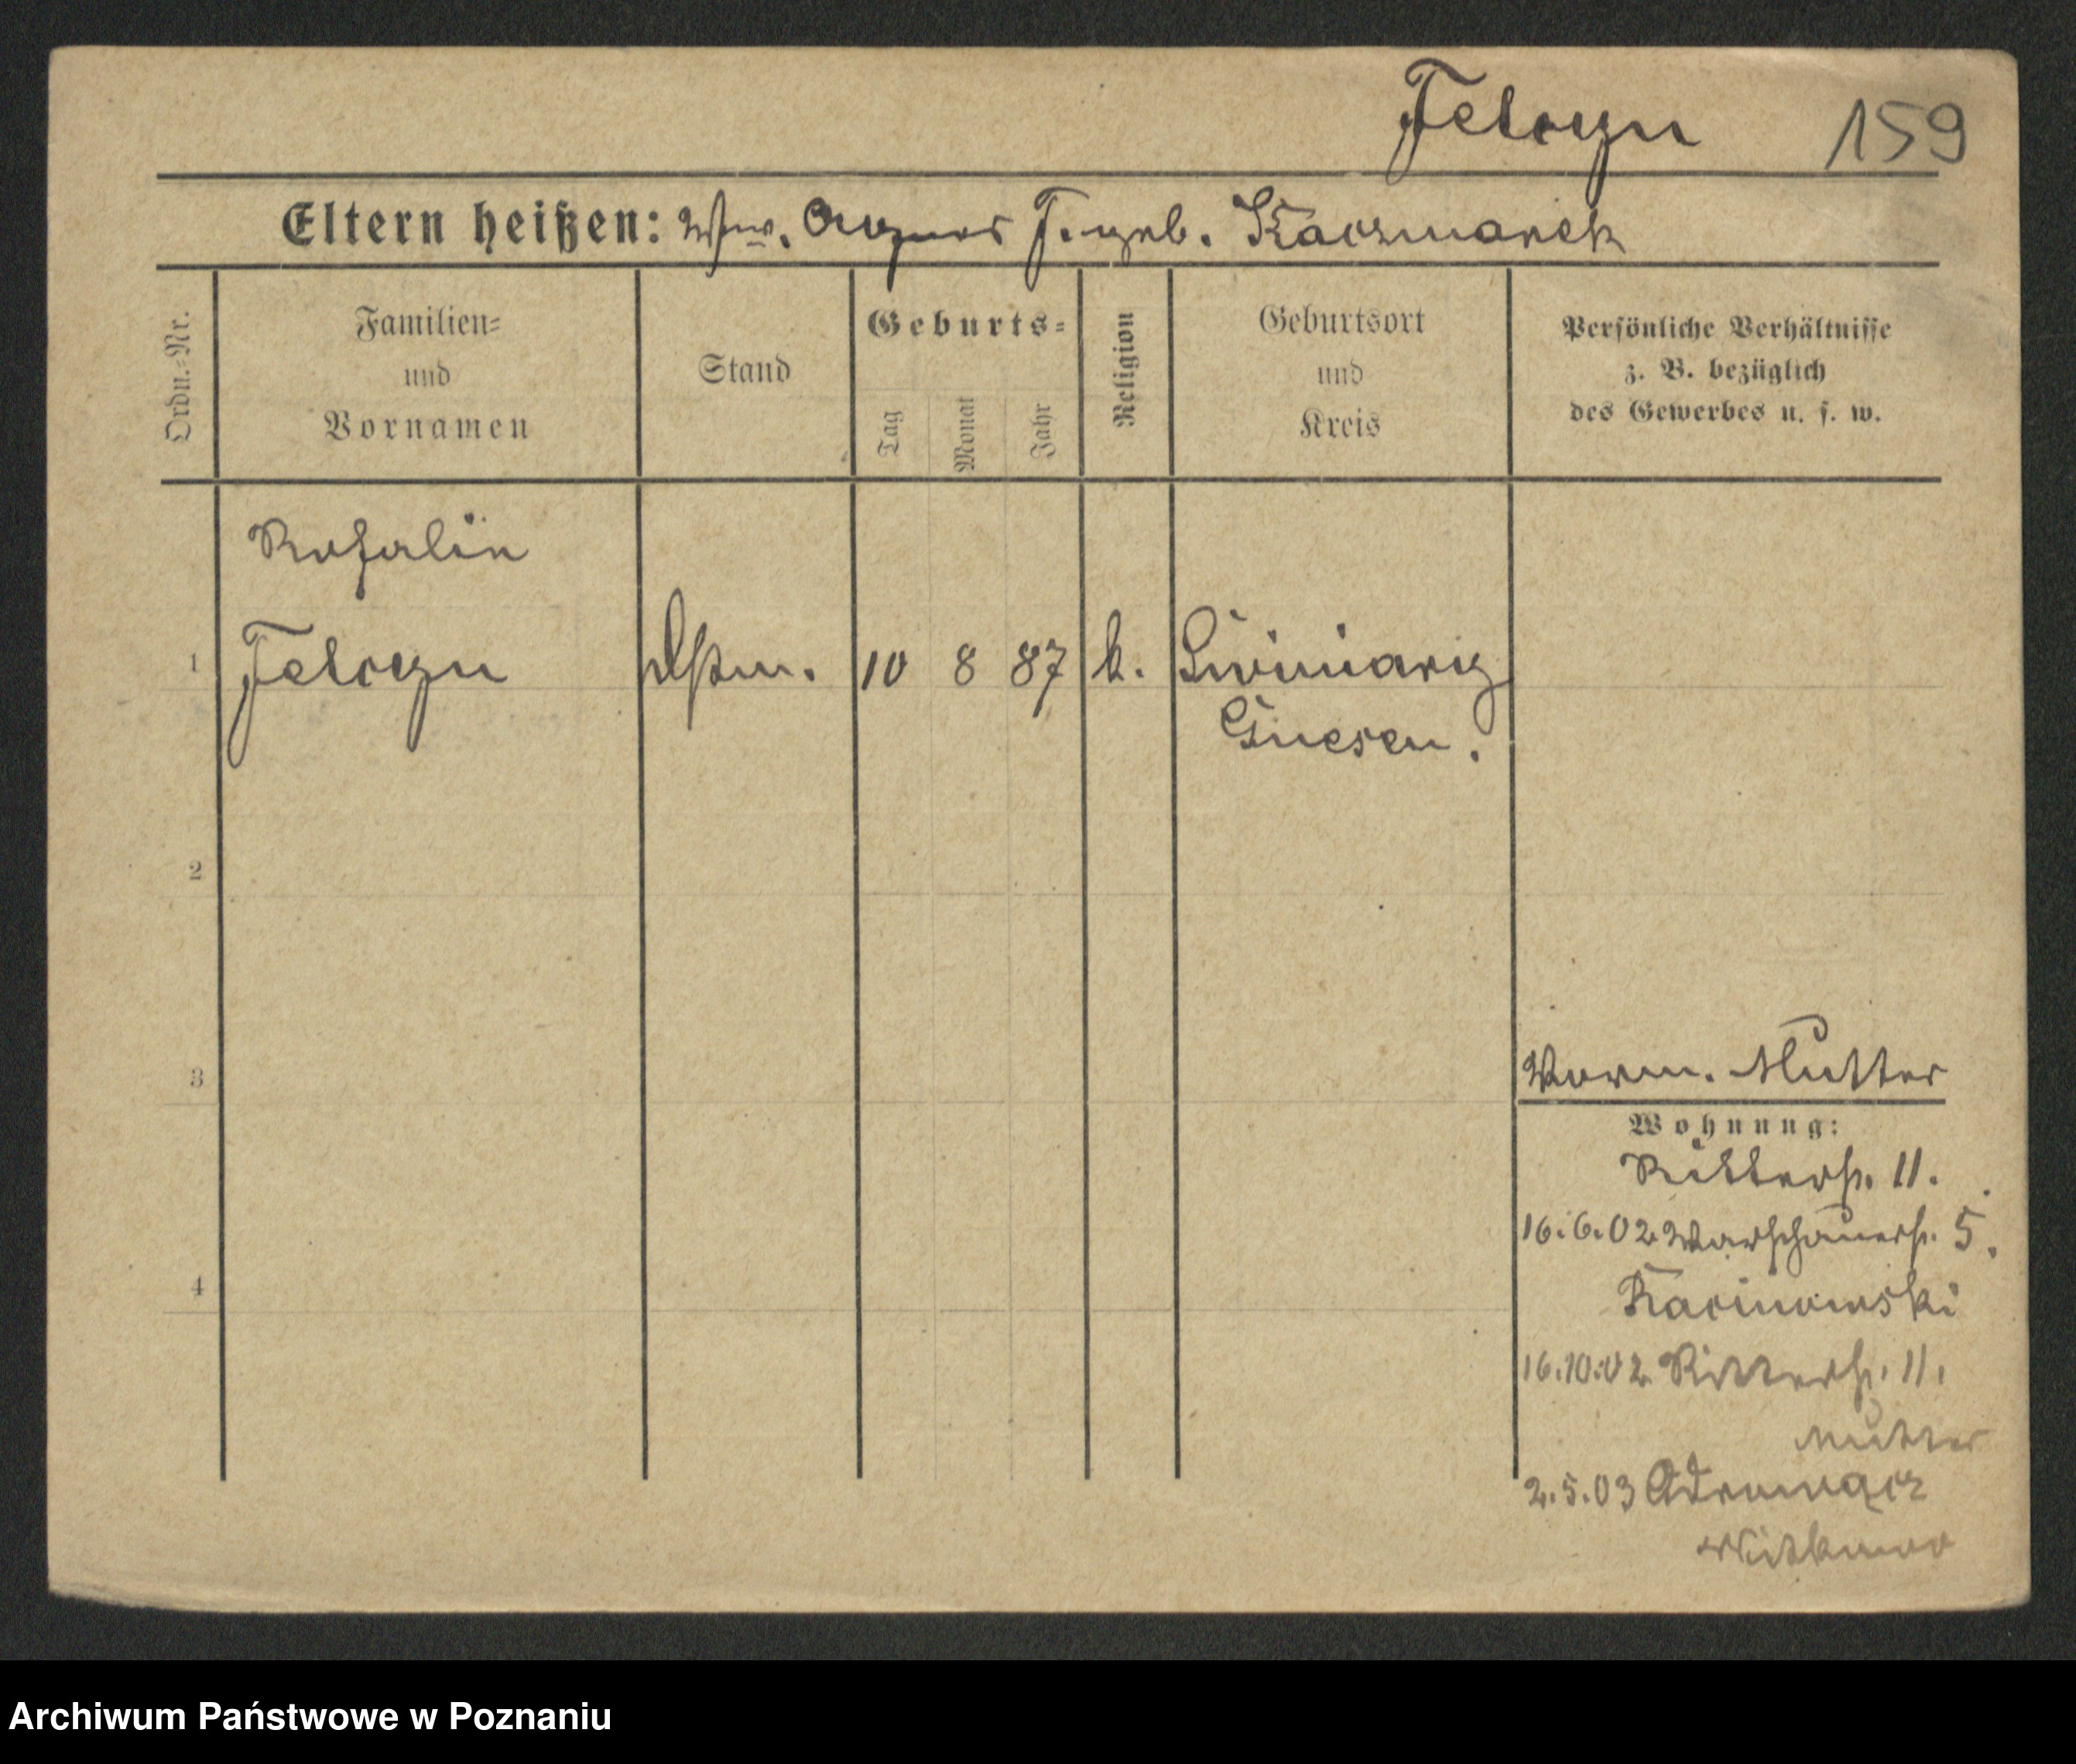 Felczyn 159
Eltern heißen: Ww. Agnes F. geb. Kaczmarek
Ordn.-Nr.
Familien-
und
Vornamen
Stand
Geburts-
Tag
Monat
Jahr
Religion
Geburtsort
und
Kreis
Persönliche Verhältnisse
z. B. bezüglich
des Gewerbes u. s. w.
Rosalie
1 Felczyn 10 8 87 k.
Gnesen.
2
3
Vorm. Mutter
Wohnung:
Ritterst. 11.
16.6.02 Warschauerst. 5.
4
16.10.02 Ritterst. 11.
Mutter
2.5.03
Witkowo
Archiwum Państwowe w Poznaniu